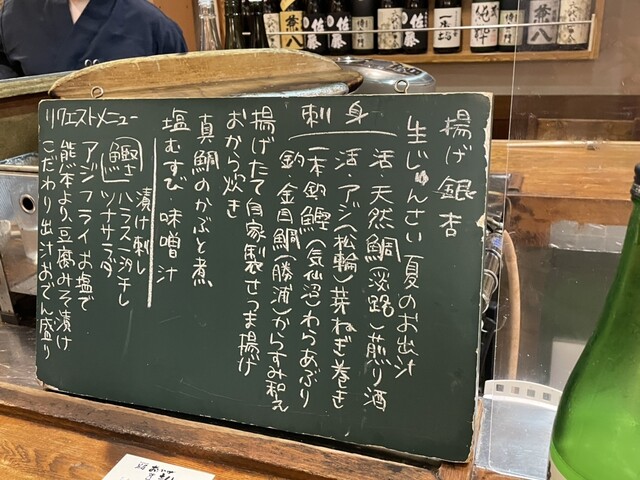 揚げ銀杏
生じゅんさい 夏のお出汁
刺身
活 天然鯛(淡路)煎り酒
活・アジ(松輪)芽ねぎ巻き
一本釣 鰹(気仙沼)わらあぶり
釣 金目鯛(勝浦)からすみ和え
揚げたて自家製さつま揚げ
おから炊き
真鯛のかぶと煮
塩むすび・味噌汁
リクエストメニュー
鰹
漬け刺し
ハラス一汐干し
ツナサラダ
アジフライ お塩で
熊本より、豆腐みそ漬け
こだわり出汁おでん盛り
兼八
佐藤
佐藤
佐藤
純米
兼八